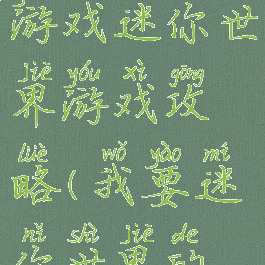 游戏迷你世
jiè yóu xì gōng
界游戏攻
lüè wǒ yào mí
略(我要迷
nǐ shì jiè de
你世界的